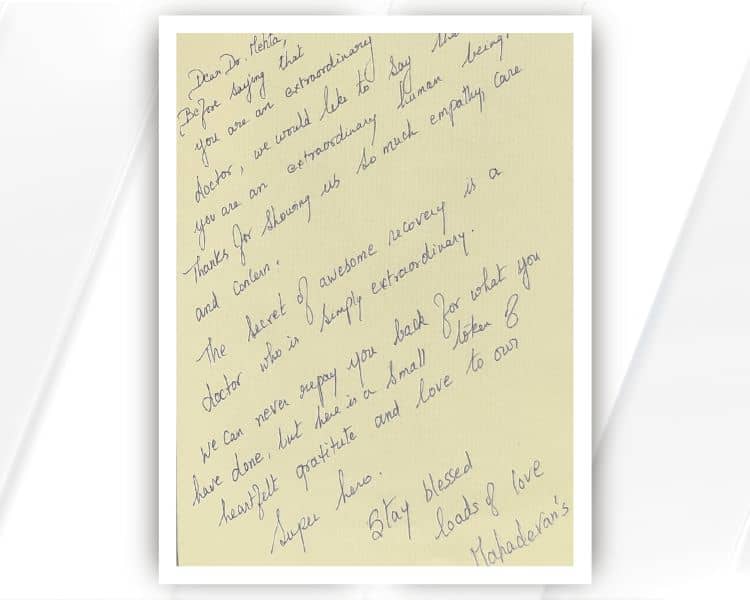 Dear Dr. Mehta,
Before saying that
you are an extraordinary
doctor, we would like to say tha
you are an extraordinary human being.
Thanks for showing us so much empathy, care
and concern.
The secret of awesome recovery is a
doctor who is simply extraordinary.
We can never repay you back for what you
have done, but here is a small token of
heartfelt gratitute and love to our
Super hero.
Stay blessed
loads of love
Mahadevan's